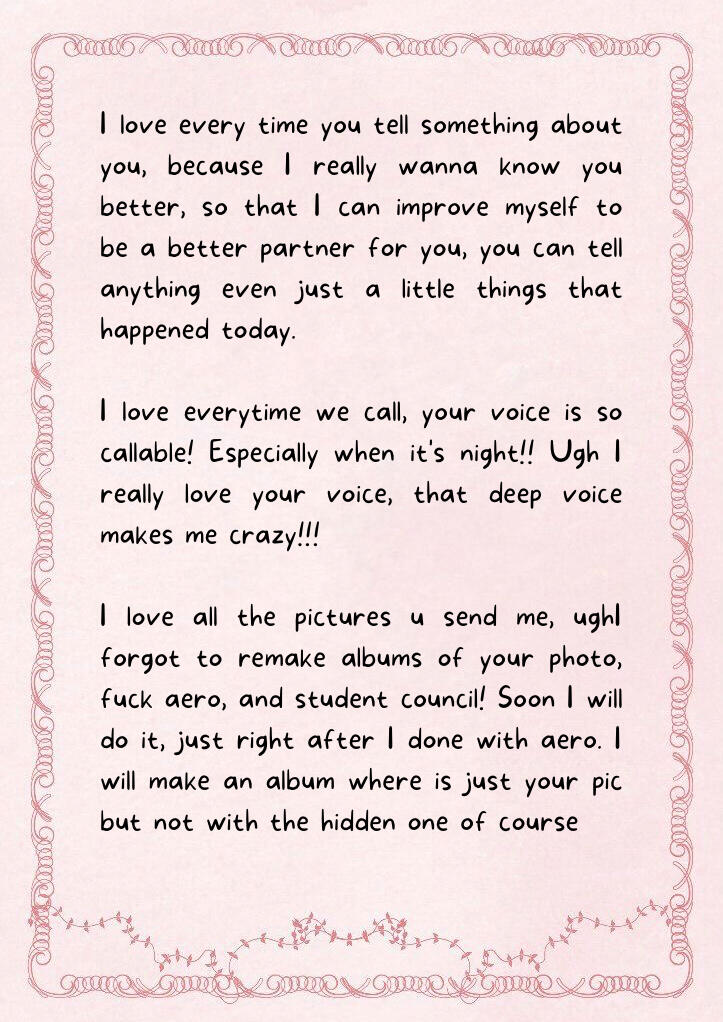 I love every time you tell something about
you, because I really wanna know you
better, so that I can improve myself to
be a better partner for you, you can tell
anything even just a little things that
happened today.
I love everytime we call, your voice is so
callable! Especially when it's night!! Ugh I
really love your voice, that deep voice
makes me crazy!!!
I love all the pictures u send me, ughI
forgot to remake albums of your photo,
fuck aero, and student council! Soon I will
do it, just right after I done with aero. I
will make an album where is just your pic
but not with the hidden one of course